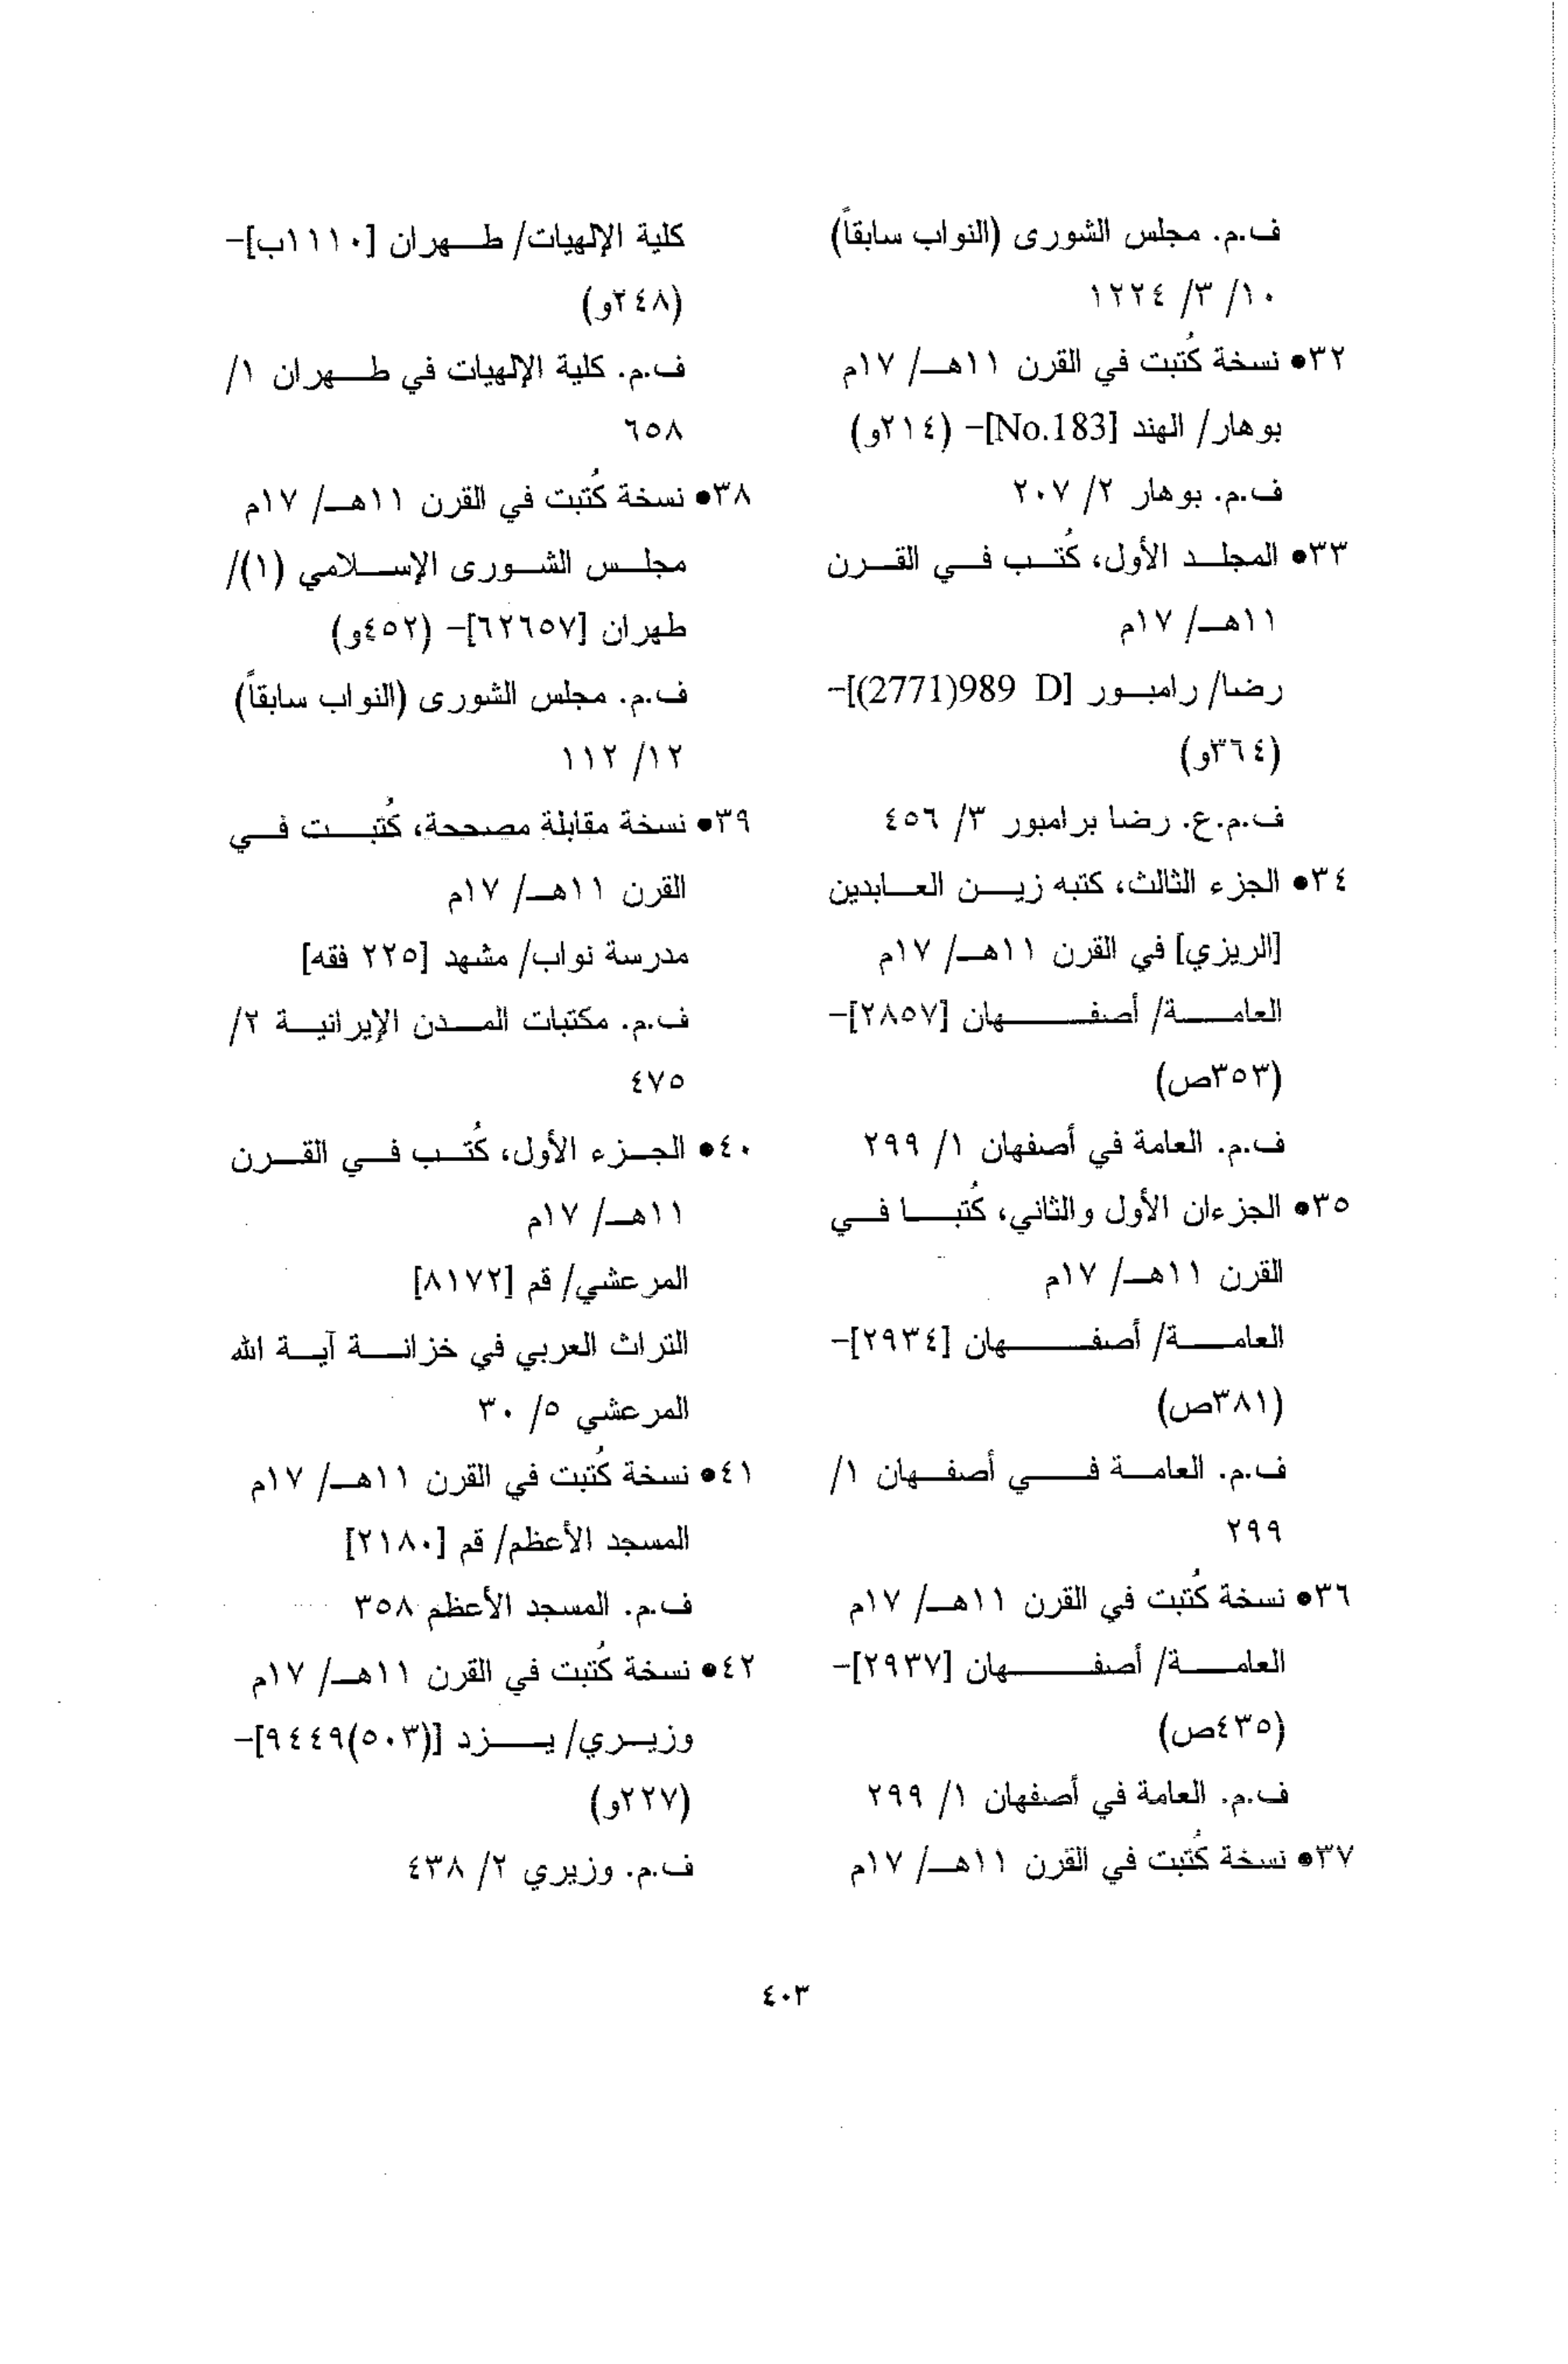 ف.م. مجلس الشورى (النواب سابقاً)
١٠/ ٣/ ١٢٢٤
٣٢● نسخة كُتبت في القرن ١١هـ/ ١٧م
بوهار/ الهند [No.183]- (٢١٤و)
ف.م. بوهار ٢/ ٢٠٧
٣٣● المجلد الأول، كُتب في القرن
١١هـ/ ١٧م
رضا/ رامبور [989 D(2771)]-
(٣٦٤و)
ف.م.ع. رضا برامبور ٣/ ٤٥٦
٣٤● الجزء الثالث، كتبه زين العابدين
[الريزي] في القرن ١١هـ/ ١٧م
العامة/ أصفهان [٢٨٥٧]-
(٣٥٣ص)
ف.م. العامة في أصفهان ١/ ٢٩٩
٣٥● الجزءان الأول والثاني، كُتبا في
القرن ١١هـ/ ١٧م
العامة/ أصفهان [٢٩٣٤]-
(٣٨١ص)
ف.م. العامة في أصفهان ١/
٢٩٩
٣٦● نسخة كُتبت في القرن ١١هـ/ ١٧م
العامة/ أصفهان [٢٩٣٧]-
(٤٣٥ص)
ف.م. العامة في أصفهان ١/ ٢٩٩
٣٧● نسخة كُتبت في القرن ١١هـ/ ١٧م
كلية الإلهيات/ طهران [١١١٠ب]-
(٢٤٨و)
ف.م. كلية الإلهيات في طهران ١/
٦٥٨
٣٨● نسخة كُتبت في القرن ١١هـ/ ١٧م
مجلس الشورى الإسلامي (١)/
طهران [٦٢٦٥٧]- (٤٥٢و)
ف.م. مجلس الشورى (النواب سابقاً)
١٢/ ١١٢
٣٩● نسخة مقابلة مصححة، كُتبت في
القرن ١١هـ/ ١٧م
مدرسة نواب/ مشهد [٢٢٥ فقه]
ف.م. مكتبات المدن الإيرانية ٢/
٤٧٥
٤٠● الجزء الأول، كُتب في القرن
١١هـ/ ١٧م
المرعشي/ قم [٨١٧٢]
التراث العربي في خزانة آية الله
المرعشي ٥/ ٣٠
٤١● نسخة كُتبت في القرن ١١هـ/ ١٧م
المسجد الأعظم/ قم [٢١٨٠]
ف.م. المسجد الأعظم ٣٥٨
٤٢● نسخة كُتبت في القرن ١١هـ/ ١٧م
وزيري/ يزد [(٥٠٣)٩٤٤٩]-
(٢٢٧و)
ف.م. وزيري ٢/ ٤٣٨
٤٠٣